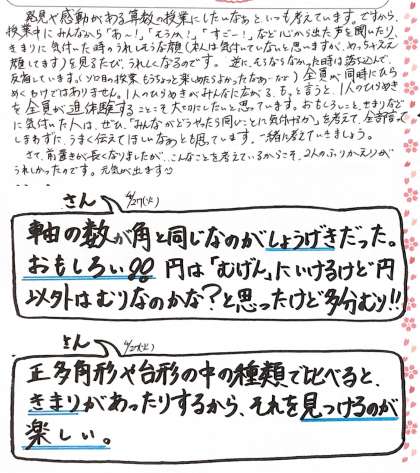 発見や感動がある算数の授業にしたいなぁといつも考えています。ですから、
授業中にみんなから「あー！」「そうか！」「すごー！」など心から出た声を聞いたり、
きまりに気付いた時のうれしそうな顔(本人は気付いていないと思いますが、めっちゃええ
顔してます)を見るたび、うれしくなるのです。逆に、そうならなかった時は落ち込んで、
反省しています。(ソロ目の授業もうちょっと楽しめたよかったなぁ…など) 全員が同時にひら
めくわけではありません。1人のひらめきがみんなに広がる、もっと言うと、1人のひらめき
を全員が追体験することこそ大切にしたいと思っています。おもしろいこと、きまりなど
に気付いた人は、ぜひ、「みんながどうやったら同じことに気付けるか」を考えて、全部言って
しまわずに、うまく伝えてほしいなぁとも思っています。一緒に考えていきましょう。
さて、前置きが長くなりましたが、こんなことを考えているからこそ、2人のふりかえりが
うれしかったのです。元気が出ます
さん 4/27(火)
軸の数が角と同じなのがしょうげきだった。
おもしろい!!円は「むげん」にいけるけど円
以外はむりなのかな？と思ったけど多分むり!!
さん 4/27(火)
正多角形や台形の中の種類で比べると、
きまりがあったりするから、それを見つけるのが
楽しい。